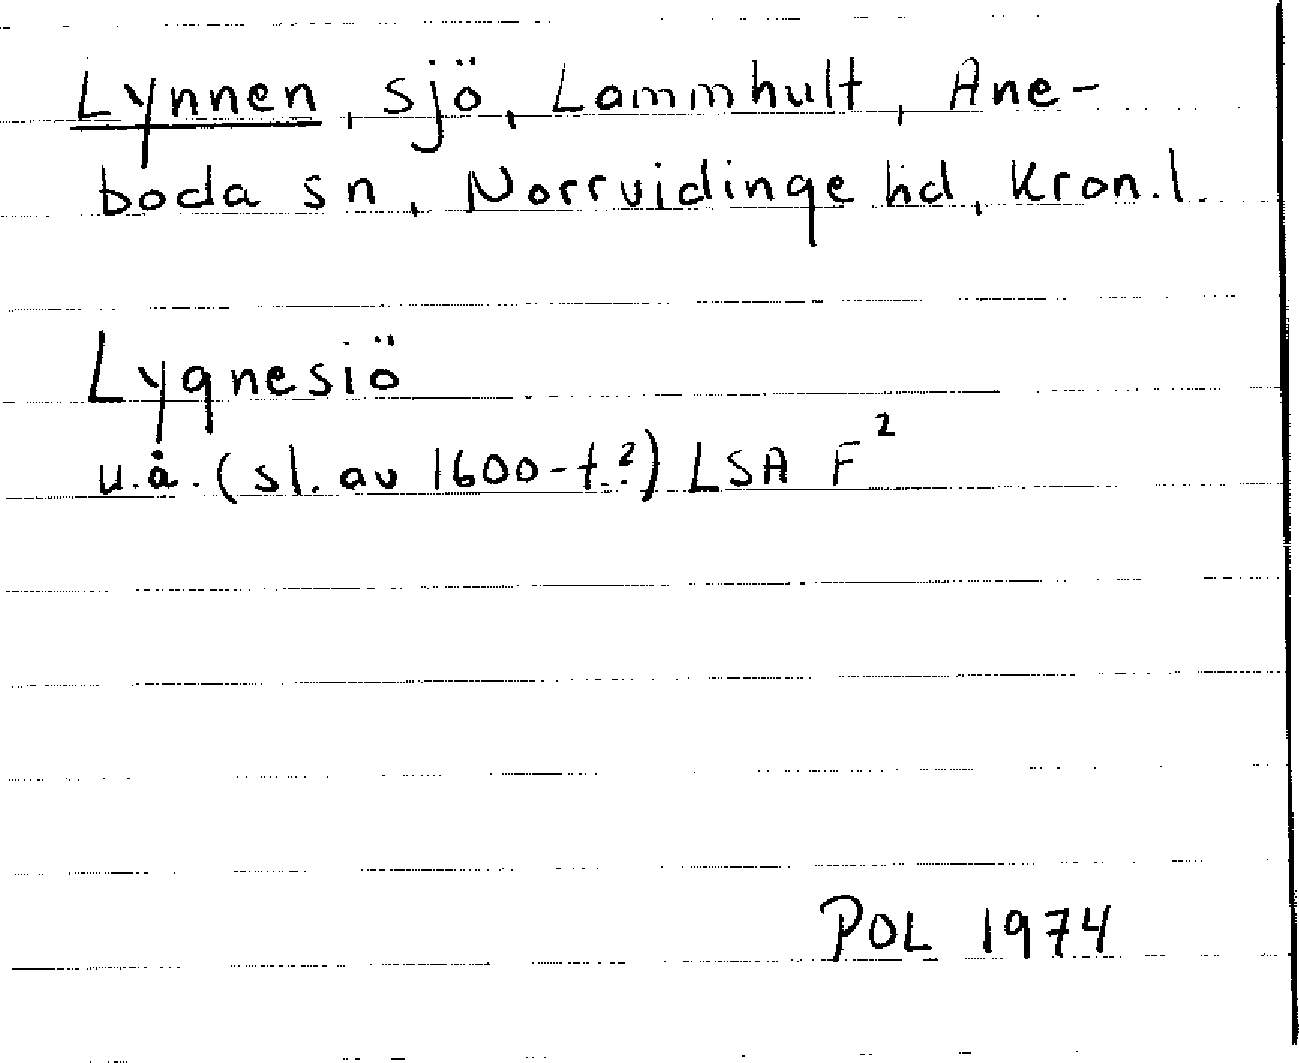 Lynnen, sjö, Lammhult, Ane-
boda sn, Norrvidinge hd, Kron.l.
Lygnesiö
u.å. (sl. av 1600-t.?) LSA F²
POL 1974